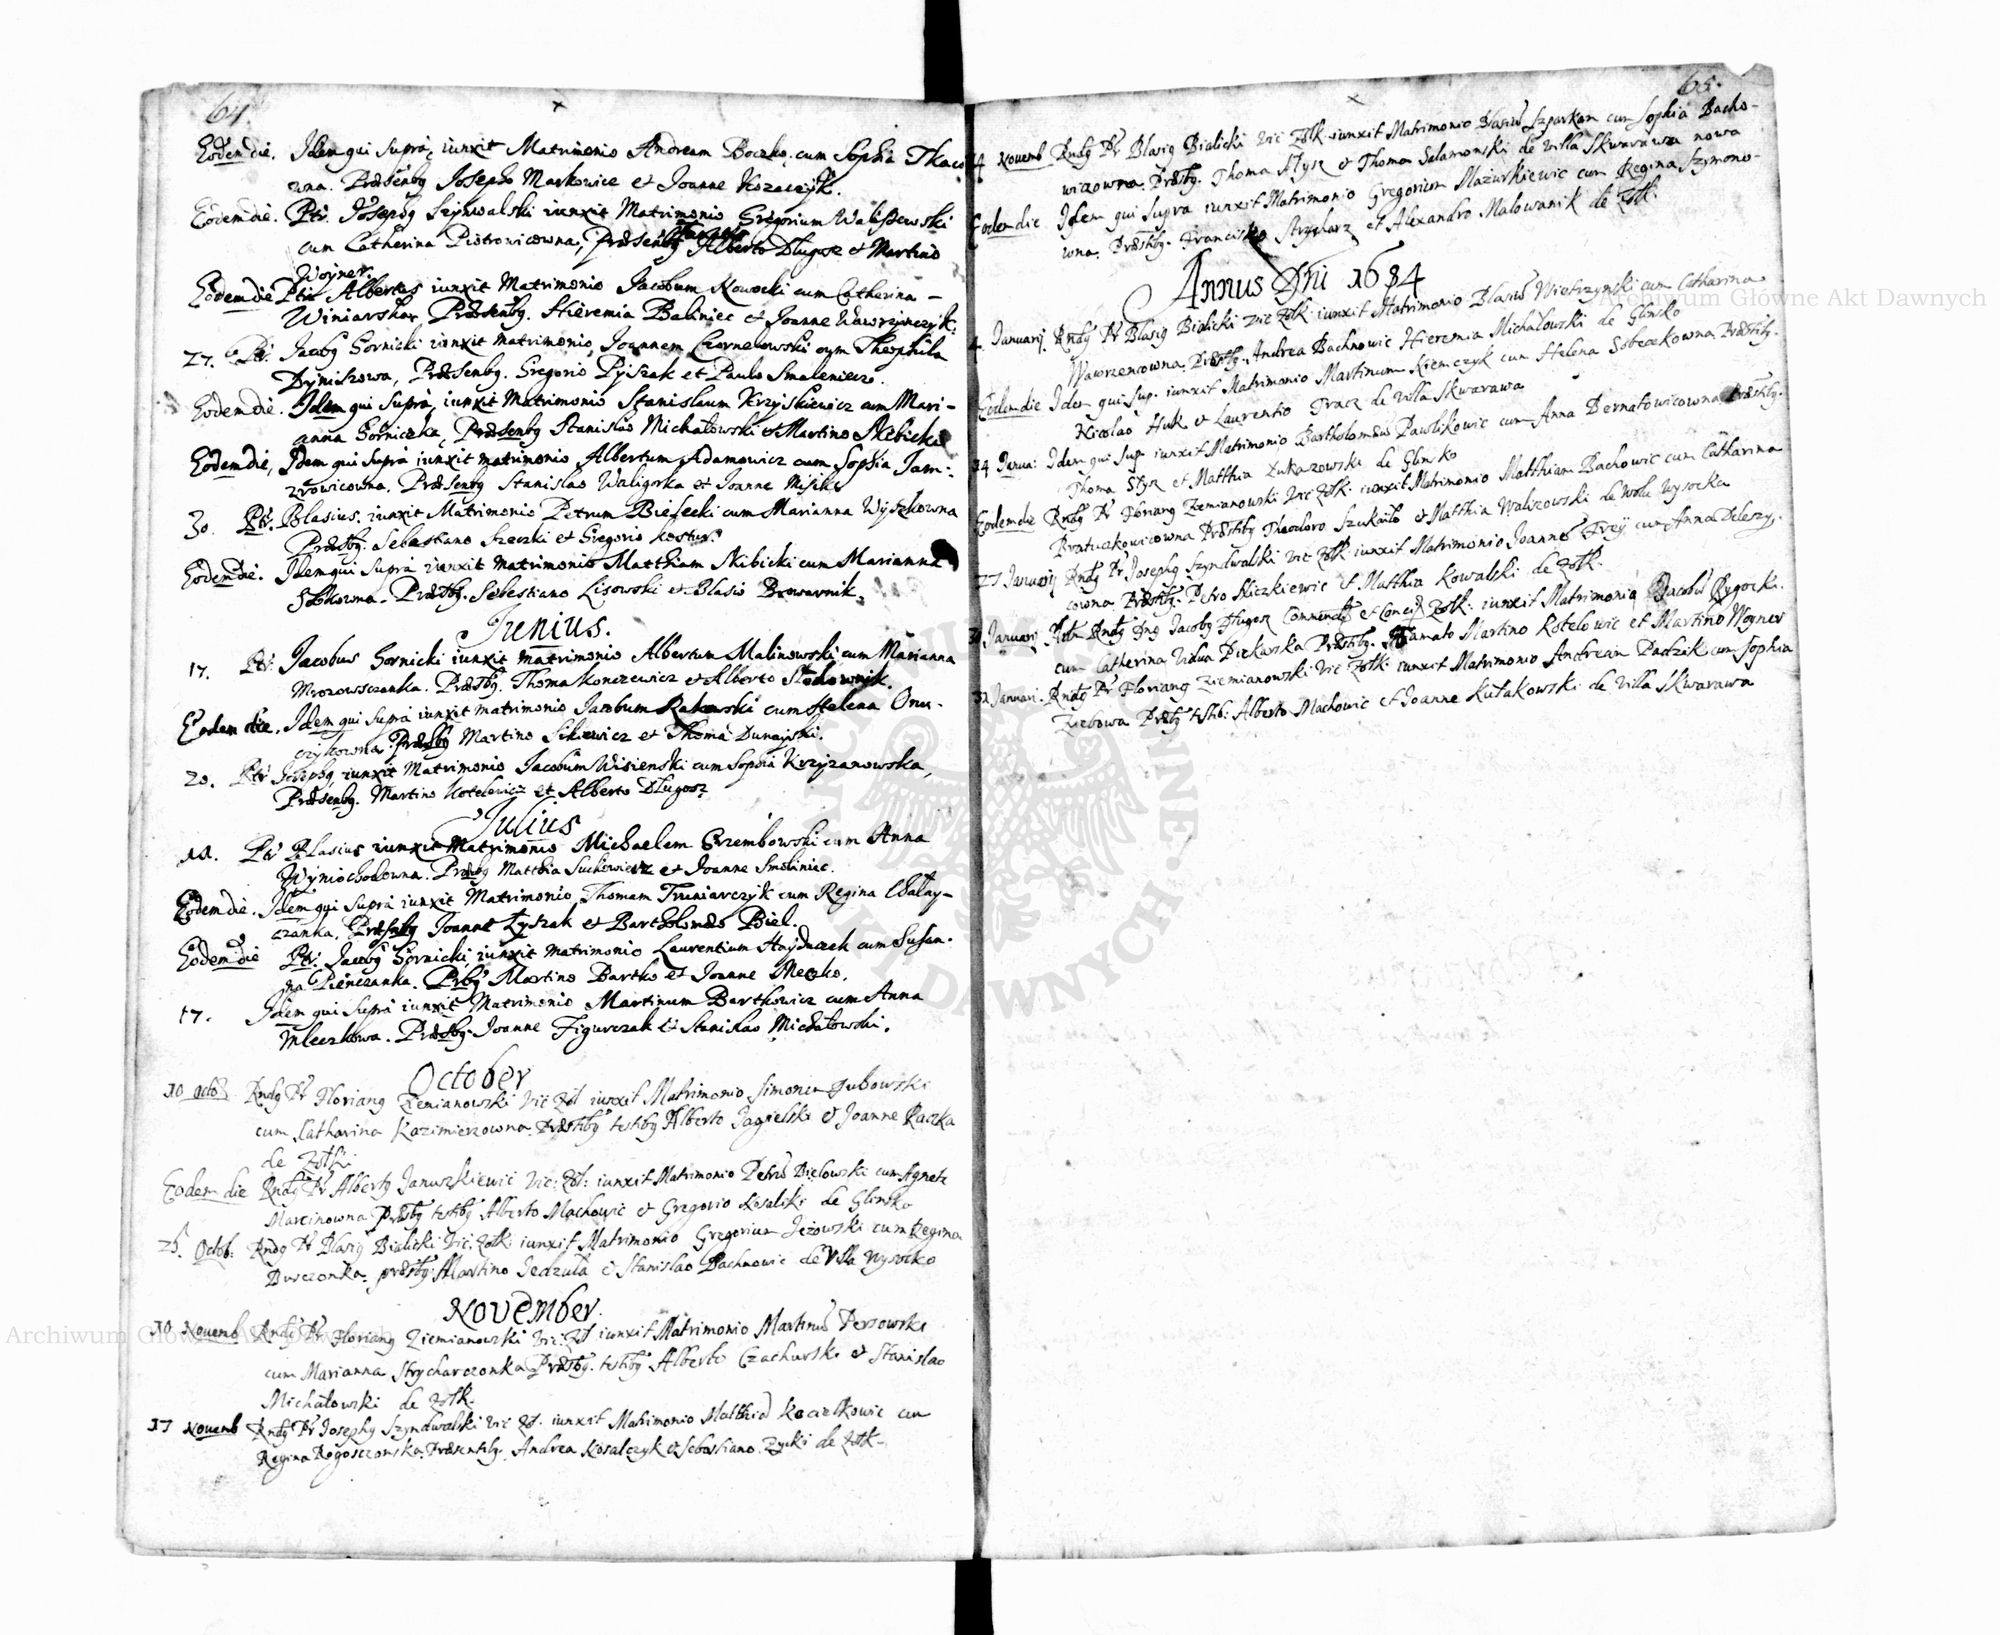 64.
Eodem die. Idem qui supra, iunxit Matrimonio Andream Boczko cum Sophia Tkaco
wna. Præsentbq Josepho Markowicz et Joanne Kozaczyk.
Eodem die. Ptr. Josephq Szynwalski iunxit Matrimonio Gregorium Waliszewski
cum Catherina Piotrowicowna, Præsentbq Alberto Długosz et Martino
Woyner.
Eodem die Ptr Albertus iunxit Matrimonio Jacobum Nowocki cum Catherina -
Winiarska, Præsentbq. Hieremia Baliniec et Joanne Wawrzynczyk.
27. Ptr. Jacobq Gornicki iunxit matrimonio, Joannem Czarnelowski cum Theophila
Dyniszowa, Præsentbq. Gregorio Pyszak et Paulo Smaleniec.
Eodem die. Idem qui Supra, iunxit Matrimonio Stanislaum Krzyskiewicz cum Mari-
anna Gorniczka, Præsentbq Stanislao Michałowski et Martino Skibicki
Eodem die, Idem qui Supra iunxit matrimonio Albertum Adamowicz cum Sophia Jam-
rowicowna. Præsentbq Stanislao Waligorka et Joanne Misik
30. Ptr. Blasius. iunxit Matrimonio Petrum Bielecki cum Marianna Wyszkowna
Præsbq. Sebastiano Szeczki et Gregorio Kostur.
Eodem die. Idem qui Supra iunxit matrimonio Matthiam Skibicki cum Marianna
Præsbq. Sebestiano Lisowski et Blasio Browarnik.
Junius.
17. Ptr. Jacobus Gornicki iunxit matrimonio Albertum Malinowski cum Marianna
Mrozowszczanka. Præsbq. Thoma Konczewicz et Alberto Słodownik.
Eodem die. Idem qui Supra iunxit matrimonio Jacobum Rakowski cum Helena Onu-
czykowna. Præsbq Martino Sikiewicz et Thoma Dunayski.
20. Ptr Josephq iunxit Matrimonio Jacobum Wisienski cum Sophia Krzyzanowska,
Præsentbq. Martino Kotelowicz et Alberto Długosz
Julius
11. Ptr Blasius iunxit Matrimonio Michaelem Grzembowski cum Anna
Wyniochodowna. Præsbq Matthia Suchowicz et Joanne Smoliniec.
Eodem die. Idem qui Supra iunxit Matrimonio Thomam Truniarczyk cum Regina Chałay-
czanka, Præsentbq Joanne Łyszak et Bartholomæo Biel.
Eodem die Ptr. Jacobq Gornicki, iunxit matrimonio Laurentium Hayduczek cum Susan-
na Pienczanka. Præsbq Martino Bartko et Joanne Meczko.
17. Idem qui Supra iunxit Matrimonio Martinum Bartkowicz cum Anna
Mleczkowa. Præsbq. Joanne Figurczak et Stanislao Michałowski.
October
10 Octob Rndq Pr Florianq Ziemianowski Vic Zoł iunxit Matrimonio Simonem Dubowski
cum Catharina Kazimierzowna. Præsntbq testibq Alberto Jagielski et Joanne Raczka
de Zołk.
Eodem die Rndq Pr Albertq Januszkiewic Vic: Zoł: iunxit Matrimonio Petrum Bielowski cum Agnete
Marcinowna Præsbq testibq Alberto Machowic et Gregorio Kosalik de Glinsko
25. Octob: Rndq Pr Blasiq Bialicki Vic. Zołk: iunxit Matrimonio Gregorium Jeżowski cum Regina
præsbq: Martino Jedzuła et Stanislao Bachnowic de Villa Wysocko
November.
10 Novemb Rndq Pr Florianq Ziemianowski Vic: Zoł iunxit Matrimonio Martinum Perzowski
cum Marianna Strycharczonka Præsbq. testibq Alberto Czachurski et Stanislao
Michałowski de Zołk.
17 Novemb Rndq Pr Josephq Szyndwalski Vic Zoł. iunxit Matrimonio Matthiam Koczelkowic cum
Regina Rogoszczonska Præsentibq. Andrea Kosalczyk et Sebastiano Zycki de Zołk-
65.
Novemb Rndq Pr Blasiq Bialicki Vic Zołk iunxit Matrimonio Blasium Szparkon cum Sophia Bacho-
wiczowna. Præsbq. Thoma Stysz et Thoma Salamonski de Villa Skwarawa nowa
Eodem die Idem qui Supra iunxit Matrimonio Gregorium Mazurkiewic cum Regina Szymono-
wna. Præsbq. Francisko Strycharz et Alexandro Malowanik de Zołk.
Annus Dni 1684
Januarij. Rndq Pr Blasiq Bialicki Vic Zołk iunxit Matrimonio Blasium Wietrzynski cum Catharina
Wawrzencowna. Præsbq. Andrea Bachnowic Hieremia Michałowski de Glinsko
Eodem die Idem qui sup. iunxit Matrimonio Martinum Niemczyk cum Helena Sobeczkowna. Præsbq.
Nicolao Huk et Laurentio Tracz de Villa Skwarawa
14 Janua: Idem qui sup iunxit Matrimonio Bartholomæum Pawlikowic cum Anna Dernatowicowna Præsbq.
Thoma Stysz et Matthia Łukaszowski de Glinsko
Eodem die Rndq Pr Florianq Ziemianowski Vic Zołk: iunxit Matrimonio Matthiam Bachowic cum Catharina
Bratuczkowicowna Præsbq Theodoro Szukaiło et Matthia Waliszowski de Wola Wysocka
27 Januarij Rndq Pr Josephq Szyndwalski Vic Zołk: iunxit Matrimonio Joannem Frey cum Anna Deleszy-
cowna Præsbq. Petro Sliczkiewic et Matthia Kowalski de Zołk.
Januarij. Rndq Dnq Jacobq Długosz Commendq et Concio Zołk: iunxit Matrimonio Jacobum Rygocki.
cum Catherina Vidua Piekarska Præsbq. Famato Martino Kotelowic et Martino Woyner
31 Januari. Rndq Pr Florianq Ziemianowski Vic Zołk: iunxit Matrimonio Andream Paczik cum Sophia
Ziębowa Præsbq testib: Alberto Machowic et Joanne Kułakowski de Villa Skwarawa
Archiwum Główne Akt Dawnych
Archiwum Główne Akt Dawnych
ARCHIWUM GŁÓWNE AKT DAWNYCH